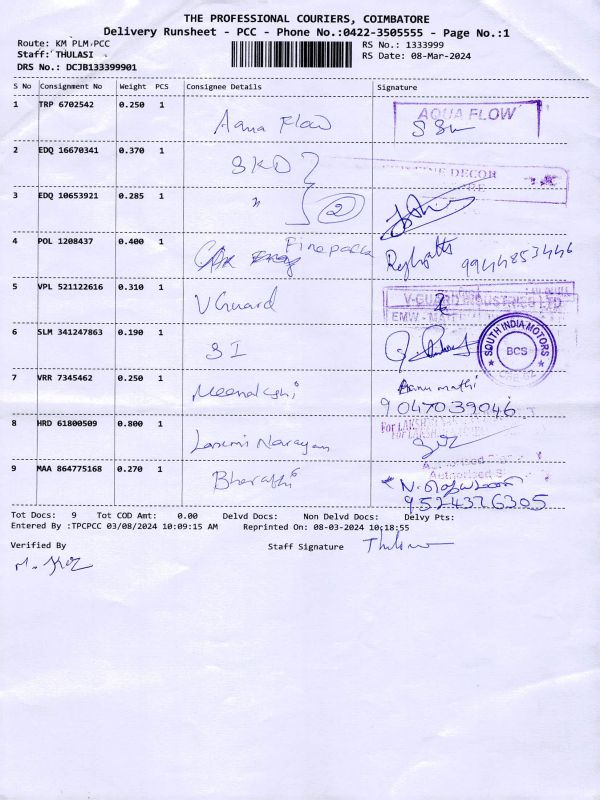 THE PROFESSIONAL COURIERS, COIMBATORE
Delivery Runsheet - PCC - Phone No.:0422-3505555 - Page No.:1
Route: KM PLM PCC
RS No.: 1333999
Staff: THULASI
RS Date: 08-Mar-2024
DRS No.: DCJB133399901
S No Consignment No Weight PCS Consignee Details Signature
1 TRP 6702542 0.250 1 Aqua Flow AQUA FLOW
2 EDQ 16670341 0.370 1 SKD DECOR
3 EDQ 10653921 0.285 1 " 2
4 POL 1208437 0.400 1 99448 53446
5 VPL 521122616 0.310 1 V Guard V-GUARD INDUSTRIES LTD
EMW -
6 SLM 341247863 0.190 1 SI SOUTH INDIA MOTORS
BCS
7 VRR 7345462 0.250 1 Meenakshi Banumathi
9047039046
8 HRD 61800509 0.800 1 Laxmi Narayan For LAKSHMI
9 MAA 864775168 0.270 1 Bharathi
9524376305
Tot Docs: 9 Tot COD Amt: 0.00 Delvd Docs: Non Delvd Docs: Delvy Pts:
Entered By :TPCPCC 03/08/2024 10:09:15 AM Reprinted On: 08-03-2024 10:18:55
Verified By Staff Signature